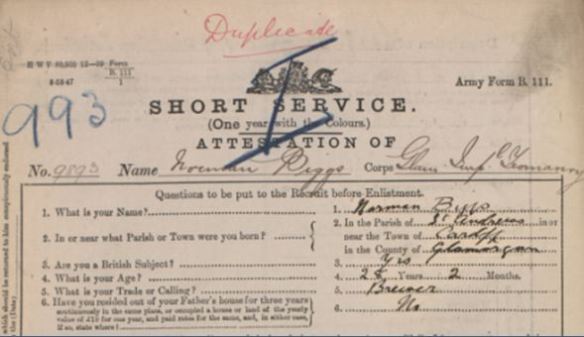 Duplicate
Army Form B. 111.
993
SHORT SERVICE.
(One year with the Colours.)
ATTESTATION OF
No. 9893 Name Norman Biggs Corps Glam. Imp. Yeomanry
Questions to be put to the Recruit before Enlistment.
1. What is your Name? 1. Norman Biggs
2. In or near what Parish or Town were you born? 2. In the Parish of St Andrews in or
near the Town of Cardiff
in the County of Glamorgan
3. Are you a British Subject? 3. Yes
4. What is your Age? 4. Years 2 Months.
5. What is your Trade or Calling? 5. Brewer
6. Have you resided out of your Father's house for three years 6. No
continuously in the same place, or occupied a house or land of the yearly
value of £10 for one year, and paid rates for the same, and, in either case,
if so, state where?